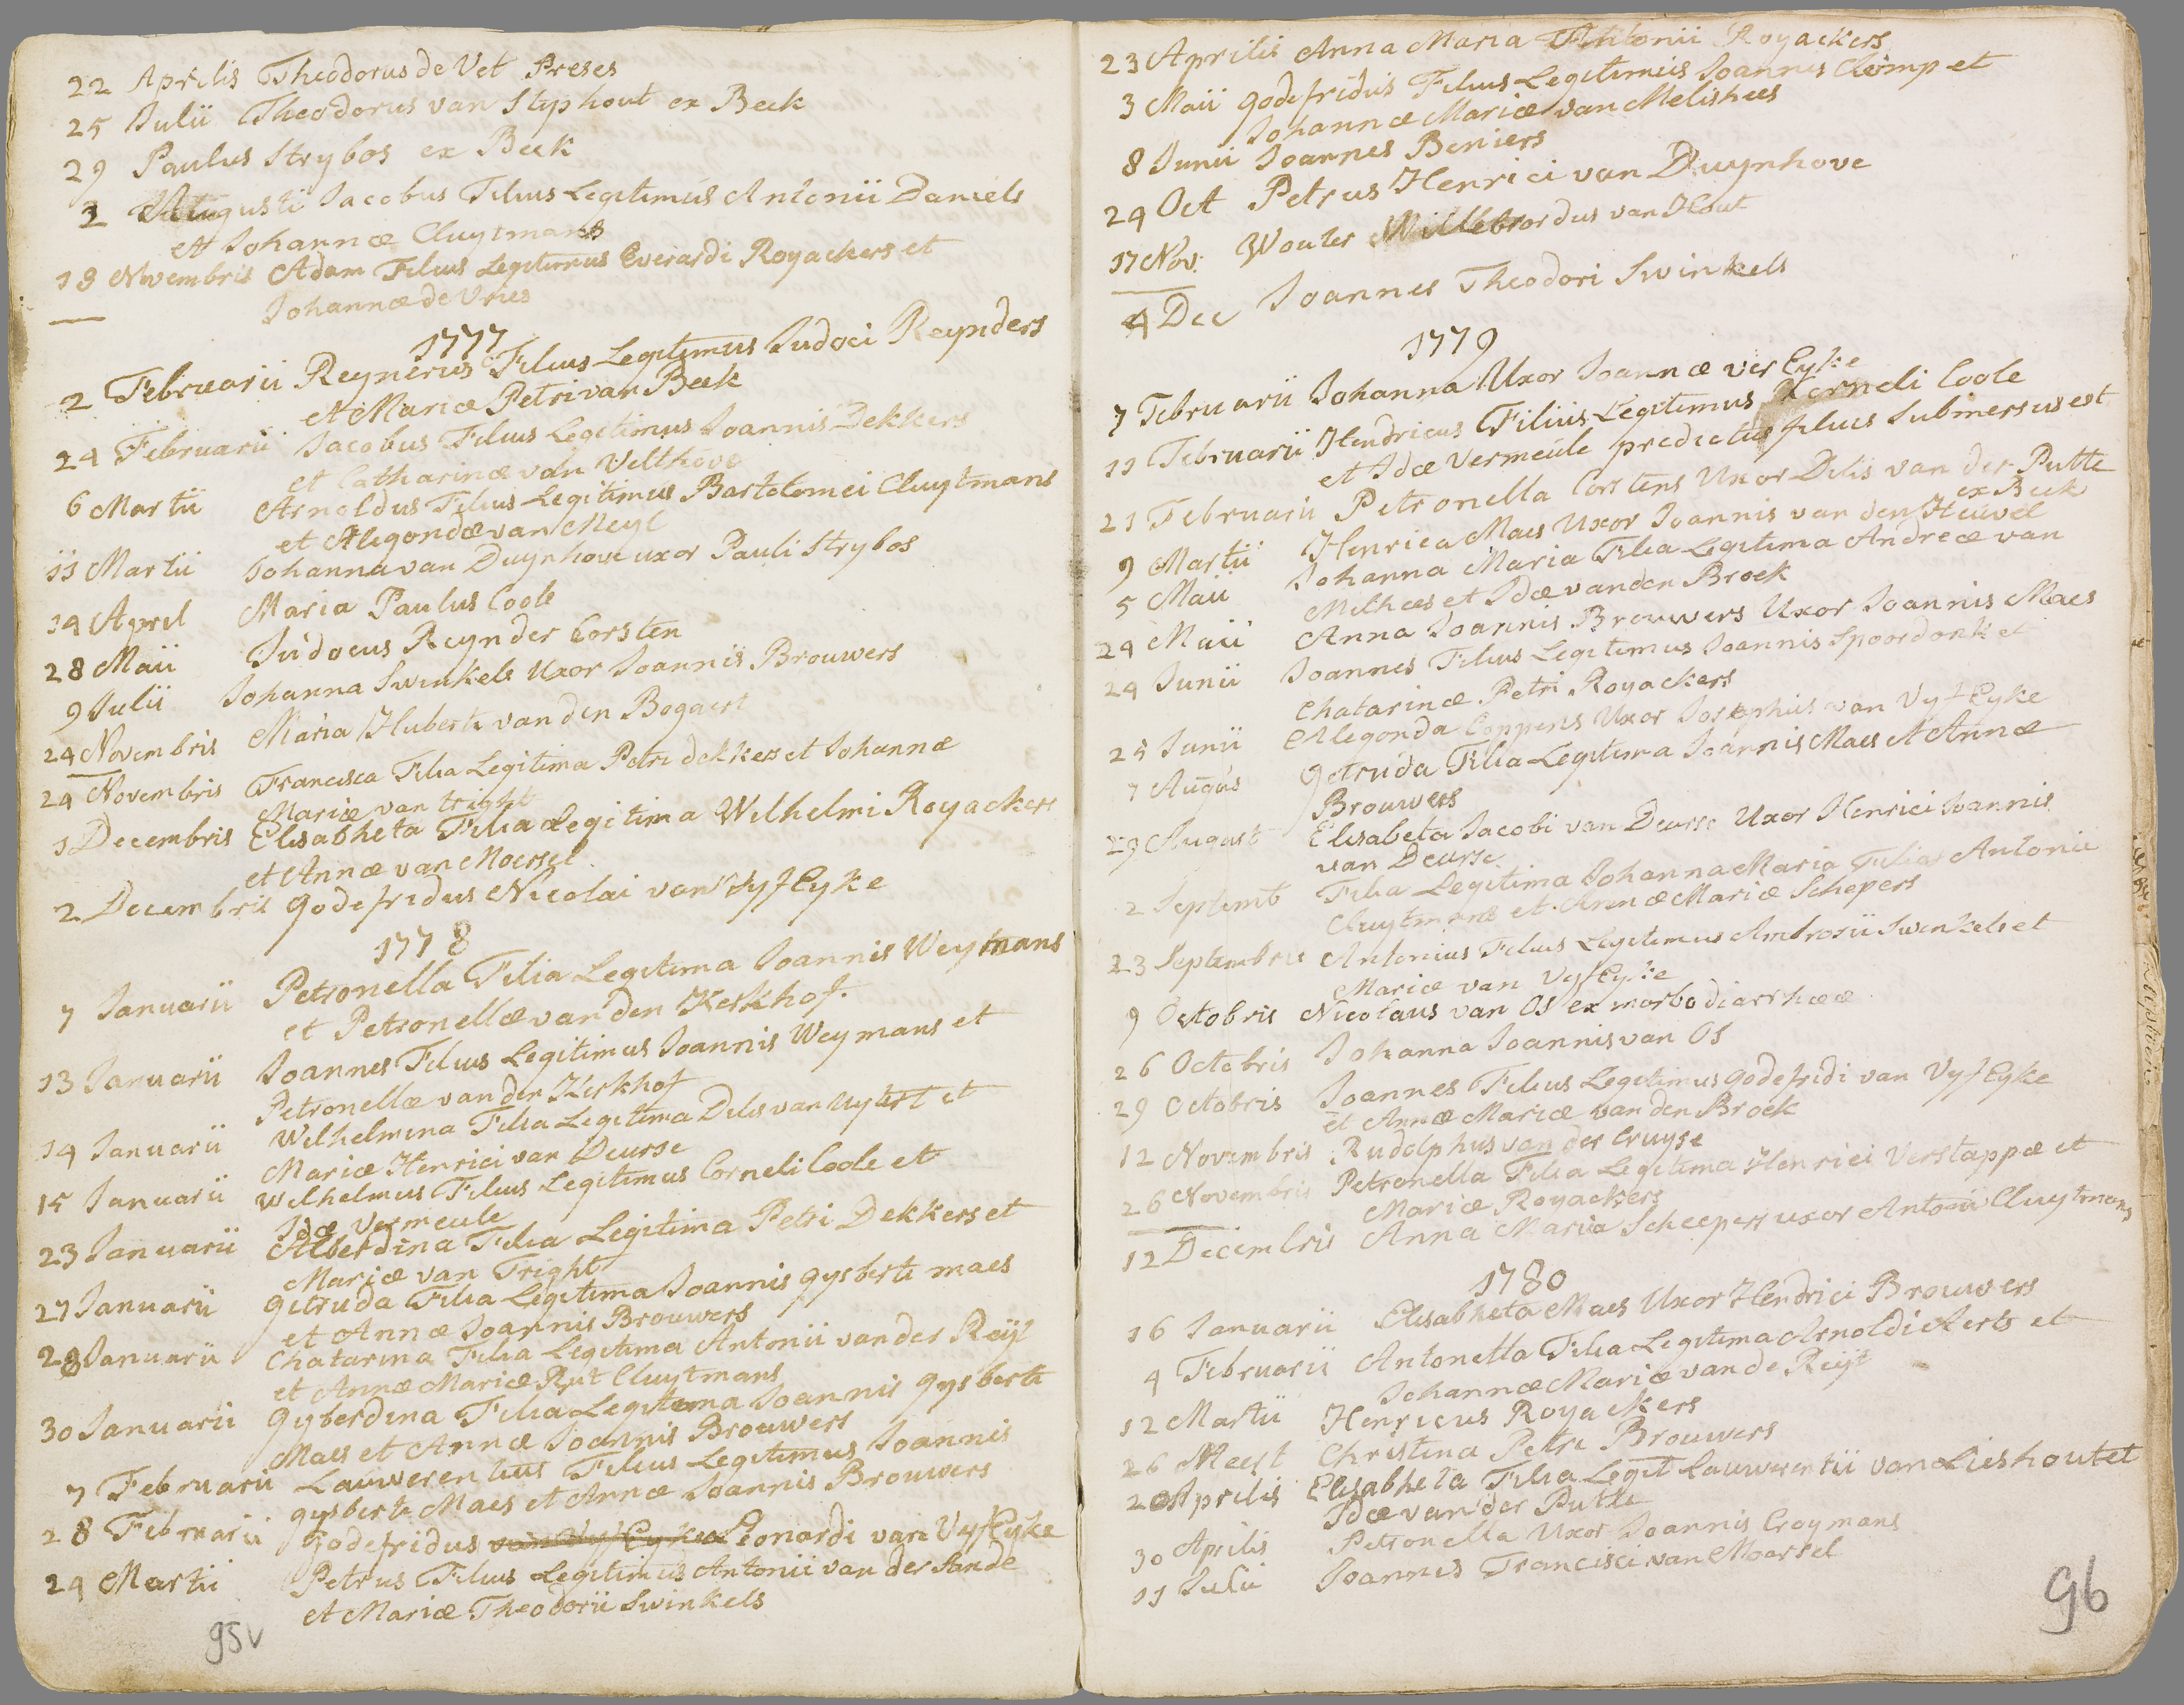 22 Aprilis Theodorus de Vet Preses
25 Julii Theodorus van Styphout ex Beek
29 Paulus Strybos ex Beek
2 Augusti Jacobus Filius Legitimus Antonii Daniels
et Johannæ Cluytmans
19 Novembris Adam Filius Legitimus Everardi Royackers et
Johannæ de Vries
1777
2 Februarii Reynerus Filius Legitimus Judoci Reynders
et Mariæ Petri van Beek
24 Februarii Jacobus Filius Legitimus Joannis Dekkers
et Catharinæ van Velthove
6 Martii Arnoldus Filius Legitimus Bartolomei Cluytmans
et Alegondæ van Meyl
11 Martii Johanna van Duynhove uxor Pauli Strybos
14 April Maria Paulus Coole
28 Maii Judocus Reynder Corsten
9 Julii Johanna Swinkels Uxor Joannis Brouwers
24 Novembris Maria Huberti van den Bogaert
24 Novembris Francisca Filia Legitima Petri dekkers et Johannæ
Mariæ van tright
1 Decembris Elisabheta Filia Legitima Wilhelmi Royackers
et Annæ van Moersel
2 Decembris godefridus Nicolai van Vyf Eyke
1778
7 Januarii Petronella Filia Legitima Joannis Weymans
et Petronellæ van den Kerkhof.
13 Januarii Joannes Filius Legitimus Joannis Weymans et
Petronellæ van der Kerkhof
14 Januarii Wilhelmina Filia Legitima Delis van Uytert et
Mariæ Henrici van Deurse
15 Januarii Wilhelmus Filius Legitimus Corneli Coole et
Idæ Vermeule
23 Januarii Alberdina Filia Legitima Petri Dekkers et
Mariæ van Tright
27 Januarii getruda Filia Legitima Joannis gysberti maes
et Annæ Joannis Brouwers
28 Januarii Chatarina Filia Legitima Antonii van der Reijt
et Annæ Mariæ Rut Cluytmans
30 Januarii gysberdina Filia Legitema Joannis gysberti
Maes et Annæ Joannis Brouwers
7 Februarii Lauwerentius Filius Legitimus Joannis
gysberti Maes et Annæ Joannis Brouwers
28 Februarii Godefridus van Vyf Eyke Leonardi van Vyf Eyke
24 Martii Petrus Filius Legitimus Antonii van der Sande
et Mariæ Theodorii Swinkels
95v
23 Aprilis Anna Maria Antonii Royackers
3 Maii godefridus Filius Legitimus Joannis Clomp et
Johannæ Mariæ van Melishees
8 Junii Joannes Beniers
24 Oct Petrus Henrici van Duynhove
17 Nov. Wouter Willebrordus van Hout
4 Dec Joannes Theodori Swinkels
1779
7 Februarii Johanna Uxor Joannæ ver Eyke
11 Februarii Hendricus Filius Legitimus Korneli Coole
et Idæ Vermeule predictus filius Submersus est
21 Februarii Petronella Corstens Uxor Delis van der Putte
ex Beek
9 Martii Henrica Maes Uxor Joannis van den Heuvel
5 Maii Johanna Maria Filia Legitima Andreæ van
Melhees et Idæ van den Broek
24 Maii Anna Joannis Brouwers Uxor Joannis Maes
24 Junii Joannes Filius Legitimus Joannis Spoordonk et
Chatarinæ Petri Royackers
25 Junii Alegonda Coppens Uxor Josephus van Vyf Eyke
7 Augus getruda Filia Legitima Joannis Maes et Annæ
Brouwers
29 August Elisabeta Jacobi van Deurse Uxor Henrici Joannis
van Deurse
2 Septemb Filia Legitima Johanna Maria Filia Antonii
Cluytmans et Annæ Mariæ Schepers
23 Septembris Antonius Filius Legitimus Ambrosii Swinkels et
Mariæ van Vyf Eyke
9 Octobris Nicolaus van Os ex morbo diarrhææ
26 Octobris Johanna Joannis van Os
29 Octobris Joannes Filius Legitimus godefridi van Vyf Eyke
et Annæ Mariæ van den Broek
12 Novembris Rudolphus van der Cruyse
26 Novembris Petronella Filia Legitima Henrici Verstappæ et
Mariæ Royackers
12 Decembris Anna Maria Scheepers uxor Antonii Cluytmans
1780
16 Januarii Elisabheta Maes Uxor Hendrici Brouwers
4 Februarii Antonetta Filia Legitima Arnoldi Aerts et
Johannæ Mariæ van de Reijt
12 Martii Henricus Royackers
26 Meert Christina Petri Brouwers
20 Aprilis Elisabheta Filia Legit Lauwerentii van Lieshout et
Idæ van der Putte
30 Aprilis Petronella Uxor Joannis Croymans
11 Julii Joannes Francisci van Moersel
96